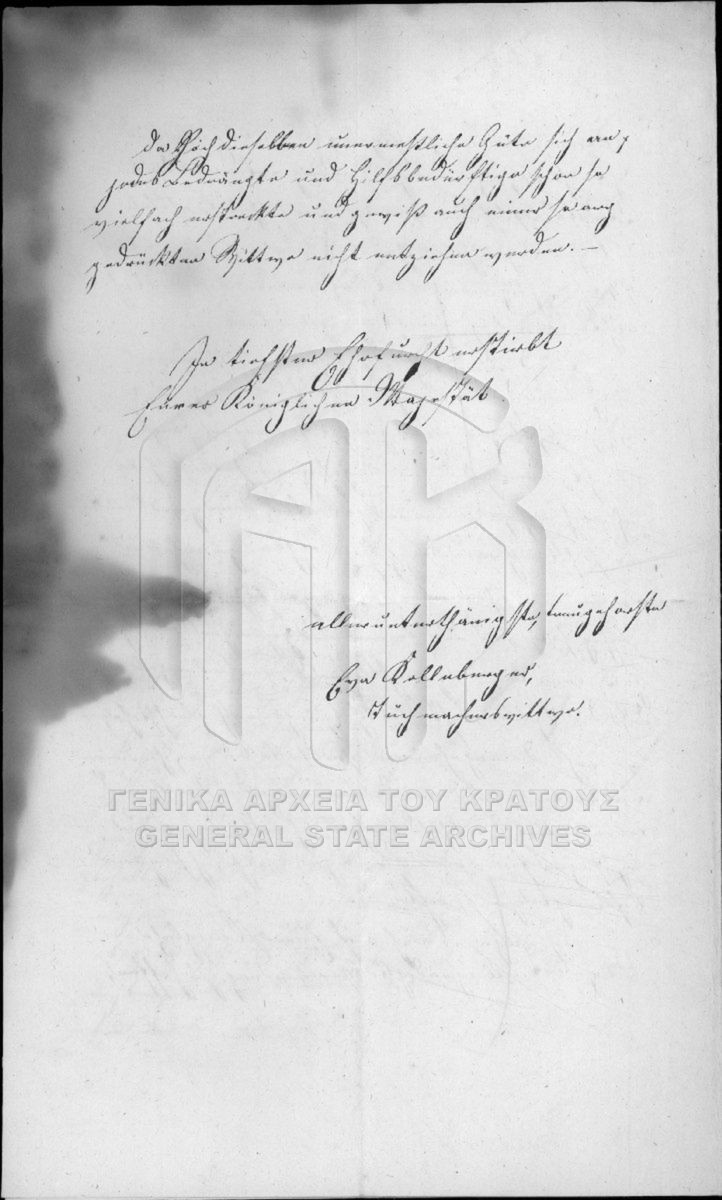 da Höchdieselben unermeßliche Güte sich an
jedes Bedrängte und Hilfsbedürftige schon so
vielfach erstreckte und gewiß auch einer so arg
gedrückten Wittwe nicht entziehen werden. –
In tiefster Ehrfurcht erstirbt
Eurer Königlichen Majestät
allerunterthänigste, treugehorste
Eva Kellnberger,
Tuchmacherswittwe.
ΓΕΝΙΚΑ ΑΡΧΕΙΑ ΤΟΥ ΚΡΑΤΟΥΣ
GENERAL STATE ARCHIVES